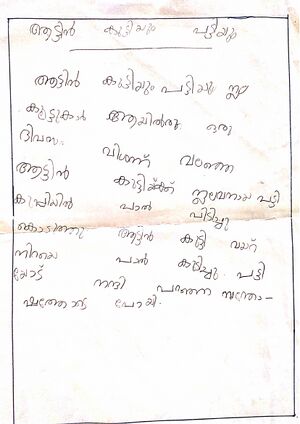 ആട്ടിൻ കുട്ടിയും പട്ടിയും
ആട്ടിൻ കുട്ടിയും പട്ടിയും നല്ല
കൂട്ടുകാർ ഒരു
ദിവസം വിശന്ന് വലഞ്ഞ
ആട്ടിൻ കുട്ടിയ്ക്ക് നല്ലവനായ പട്ടി
കുപ്പിയിൽ പാൽ പിടിച്ചു
കൊടുത്തു ആട്ടിൻ കുട്ടി വയറ്
നിറയെ പാൽ കുടിച്ചു. പട്ടി
യോട് നന്ദി പറഞ്ഞു സന്തോ-
ഷത്തോടെ പോയി.